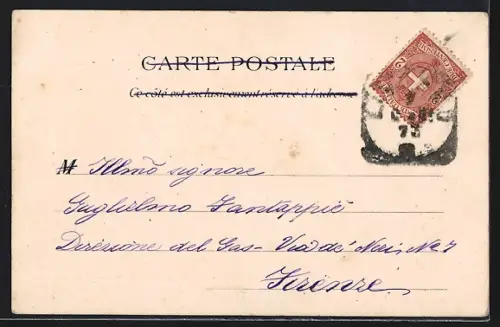 CARTE POSTALE
Ce côté est exclusivement réservé à l'adresse
M Illmo signore
Guglielmo Fantappiè
Direzione del Gas - Via de' Neri, No 7
Firenze